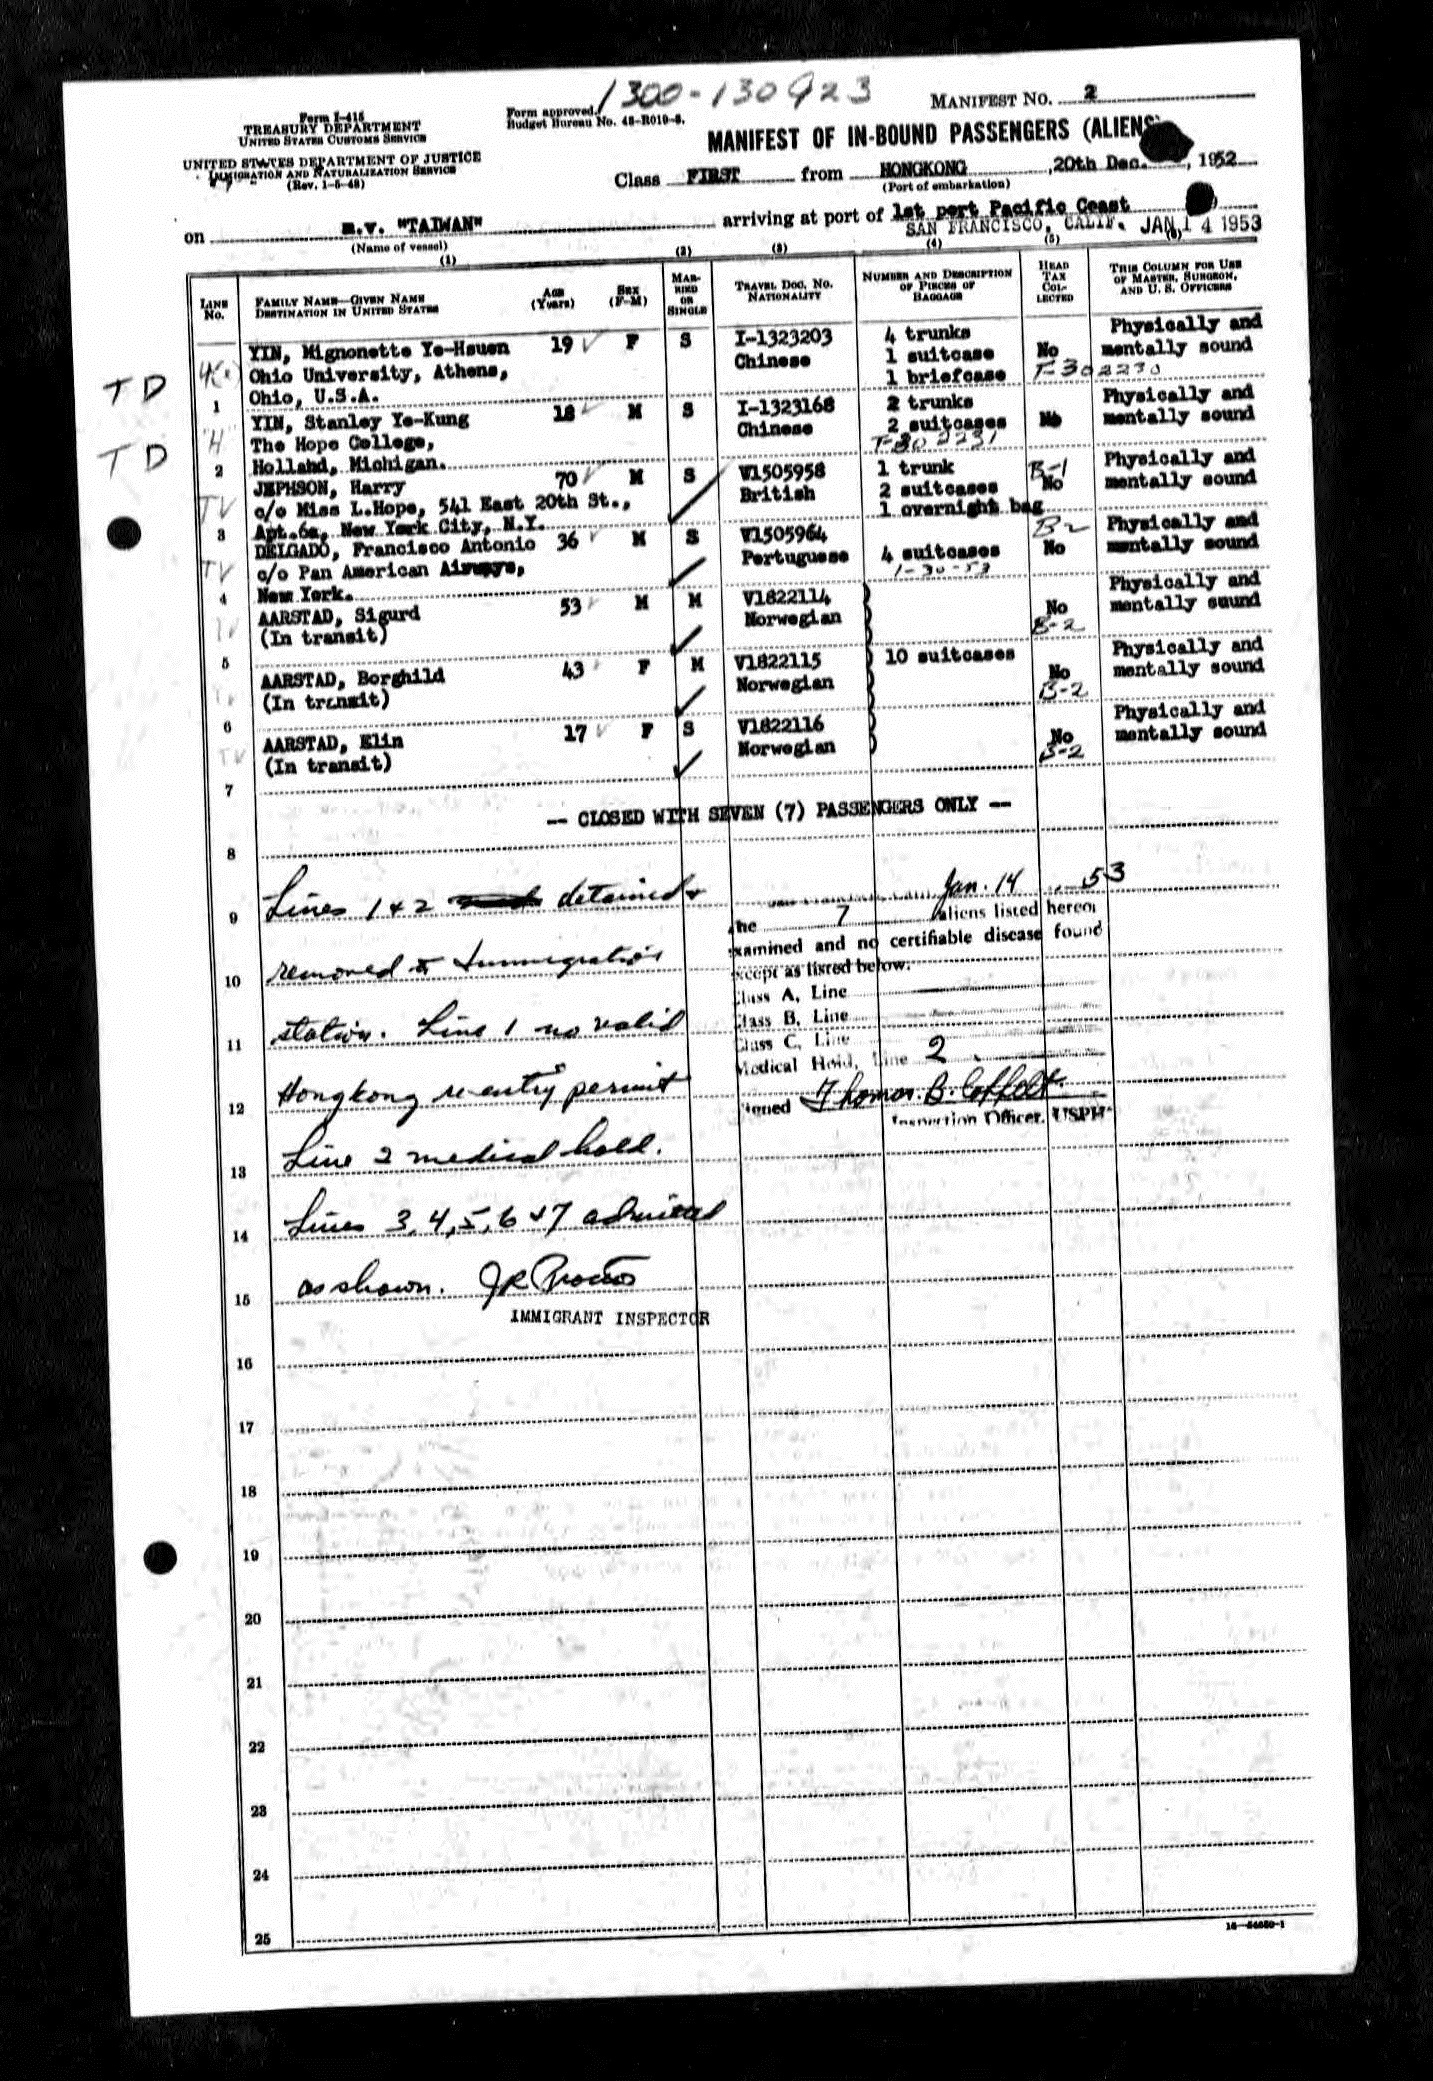 1300-130923
MANIFEST No. 2
Form I-415
TREASURY DEPARTMENT
UNITED STATES CUSTOMS SERVICE
Form approved.
Budget Bureau No. 43-R019-3.
MANIFEST OF IN-BOUND PASSENGERS (ALIENS)
UNITED STATES DEPARTMENT OF JUSTICE
IMMIGRATION AND NATURALIZATION SERVICE
(Rev. 1-5-48)
Class FIRST from HONGKONG, 20th Dec., 1952
(Port of embarkation)
on m.v. "TAIWAN" arriving at port of 1st port Pacific Coast
SAN FRANCISCO, CALIF. JAN 14 1953
(Name of vessel)
(1) (2) (3) (4) (5) (6)
LINE No.
FAMILY NAME—GIVEN NAME
DESTINATION IN UNITED STATES
AGE (Years)
SEX (F-M)
MARRIED OR SINGLE
TRAVEL DOC. NO.
NATIONALITY
NUMBER AND DESCRIPTION OF PIECES OF BAGGAGE
HEAD TAX COLLECTED
THIS COLUMN FOR USE OF MASTER, SURGEON, AND U. S. OFFICERS
TD
1 YIN, Mignonette Ye-Hsuen 19 F S I-1323203 4 trunks Physically and
Ohio University, Athens, Chinese 1 suitcase No mentally sound
Ohio, U.S.A. 1 briefcase T-302230
TD "H"
2 YIN, Stanley Ye-Kung 18 M S I-1323168 2 trunks Physically and
The Hope College, Chinese 2 suitcases No mentally sound
Holland, Michigan. T-302231
TV
3 JEPHSON, Harry 70 M S V1505958 1 trunk B-1 Physically and
c/o Miss L.Hope, 541 East 20th St., British 2 suitcases No mentally sound
Apt.6a, New York City, N.Y. 1 overnight bag
TV
4 DELGADO, Francisco Antonio 36 M S V1505964 B2 Physically and
c/o Pan American Airways, Portuguese 4 suitcases No mentally sound
New York. 1-30-53
TV
5 AARSTAD, Sigurd 53 M M V1822114 No Physically and
(In transit) Norwegian B-2 mentally sound
6 AARSTAD, Borghild 43 F M V1822115 10 suitcases No Physically and
(In transit) Norwegian B-2 mentally sound
TV
7 AARSTAD, Elin 17 F S V1822116 No Physically and
(In transit) Norwegian B-2 mentally sound
-- CLOSED WITH SEVEN (7) PASSENGERS ONLY --
8
9 Lines 1 & 2 detained &
10 removed to Immigration
11 station. Line 1 no valid
12 Hongkong re-entry permit
13 Line 2 medical hold.
14 Lines 3, 4, 5, 6 & 7 admitted
15 as shown.
IMMIGRANT INSPECTOR
Jan. 14, 53
the 7 aliens listed hereon
examined and no certifiable disease found
except as listed below:
Class A, Line
Class B, Line
Class C, Line
Medical Hold, Line 2.
Signed Thomas. B. Coffelt
Inspection Officer, USPH
16
17
18
19
20
21
22
23
24
25